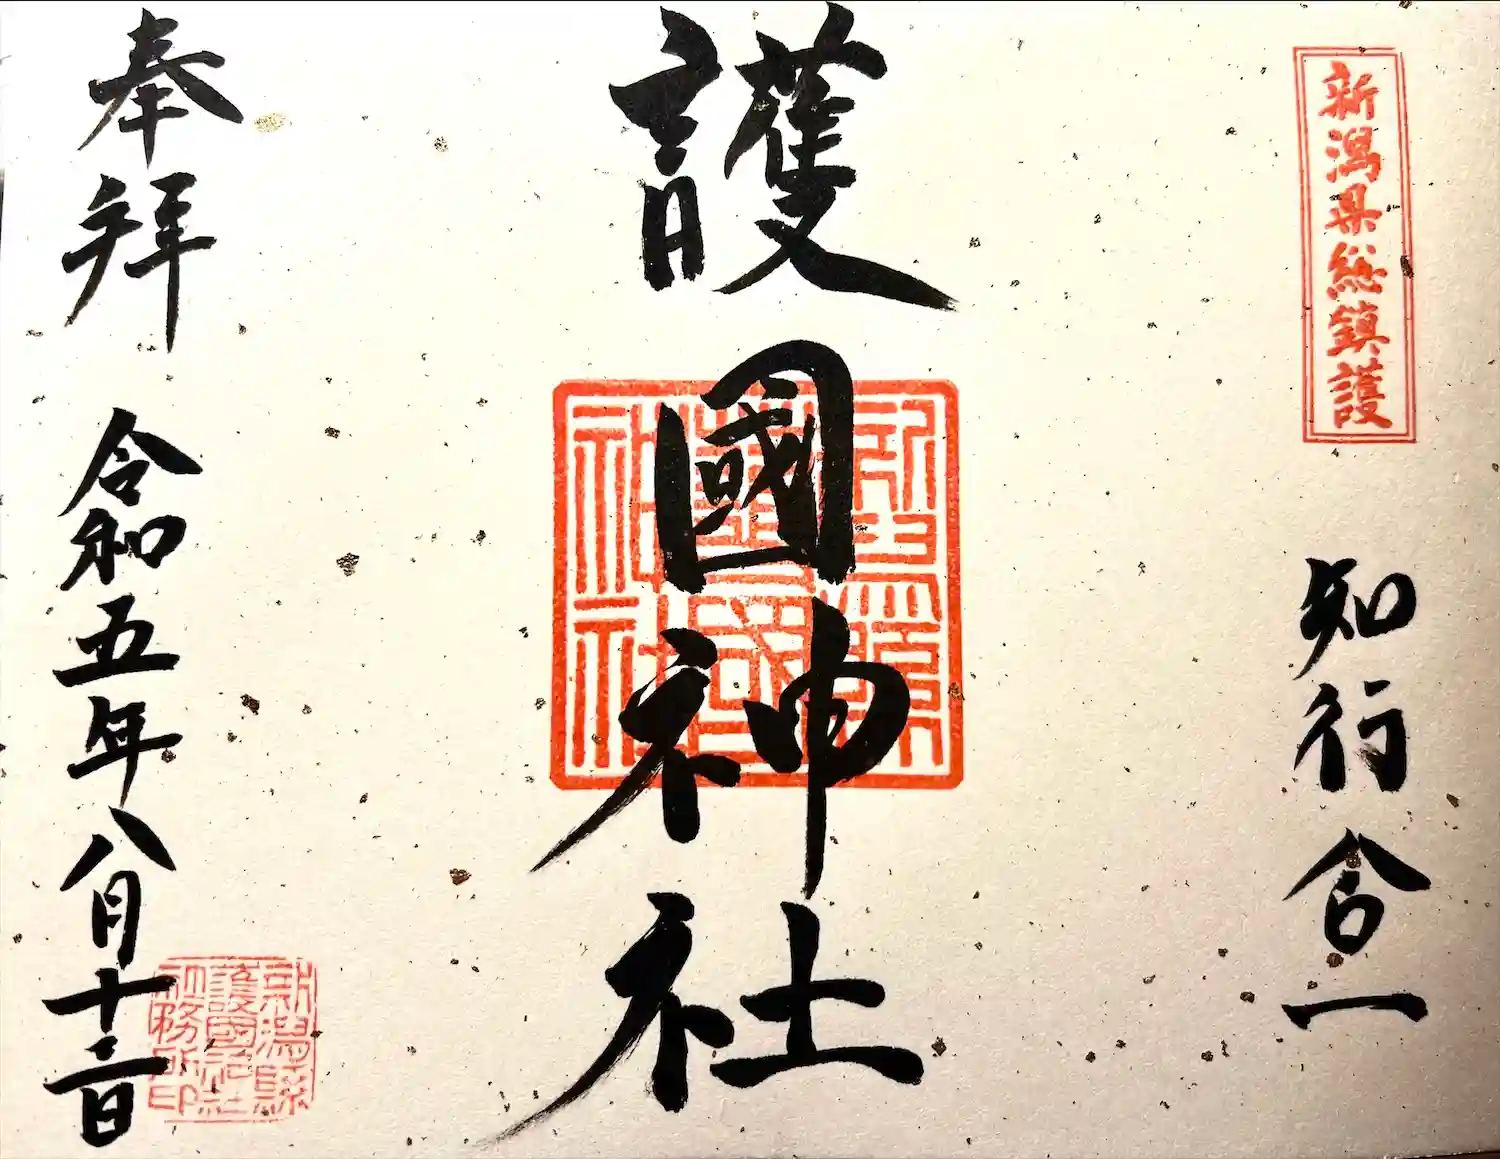 新潟県総鎮護
知行合一
護國神社
新潟縣
護國
神社
奉拝
令和五年八月十二日
新潟縣
護國神社
社務所印